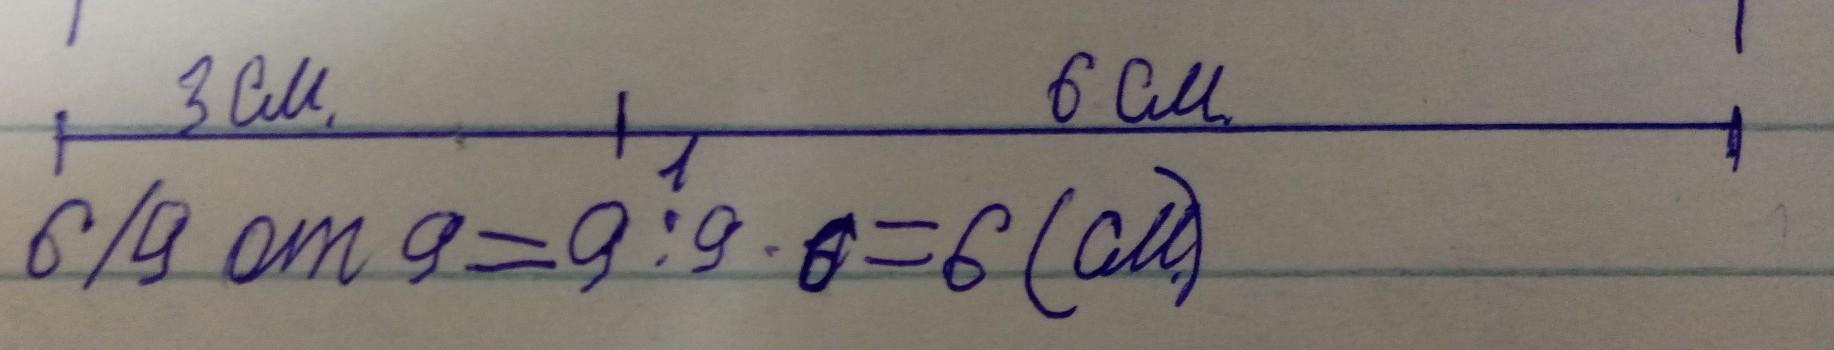 3 см. 6 см.
1
6/9 от 9=9:9·6=6(см.)